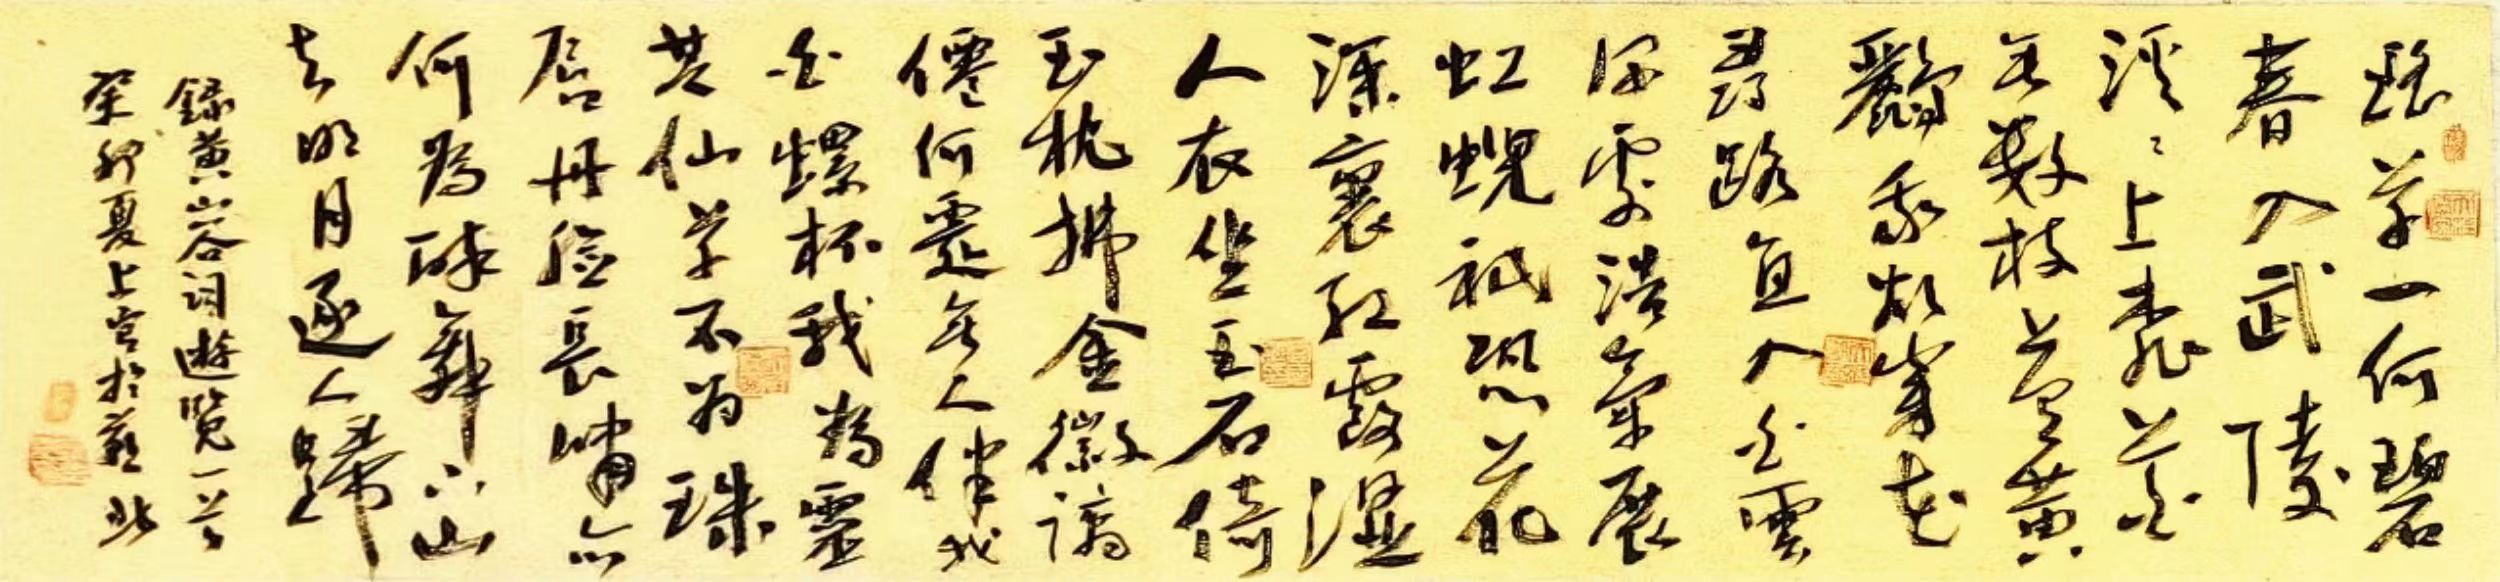 瑤草一何碧
春入武陵
溪〻上桃花
無數枝上有黃
鸝我欲穿花
尋路直入白雲
深處浩氣展
虹蜺祇恐花
深裏紅露濕
人衣坐玉石倚
玉枕拂金徽謫
僊何處無人伴我
白螺杯我為靈
芝仙草不為珠
唇丹臉長嘯亦
何為醉舞下山
去明月逐人歸
録黃山谷詞遊覽一首
癸卯夏上官於燕北